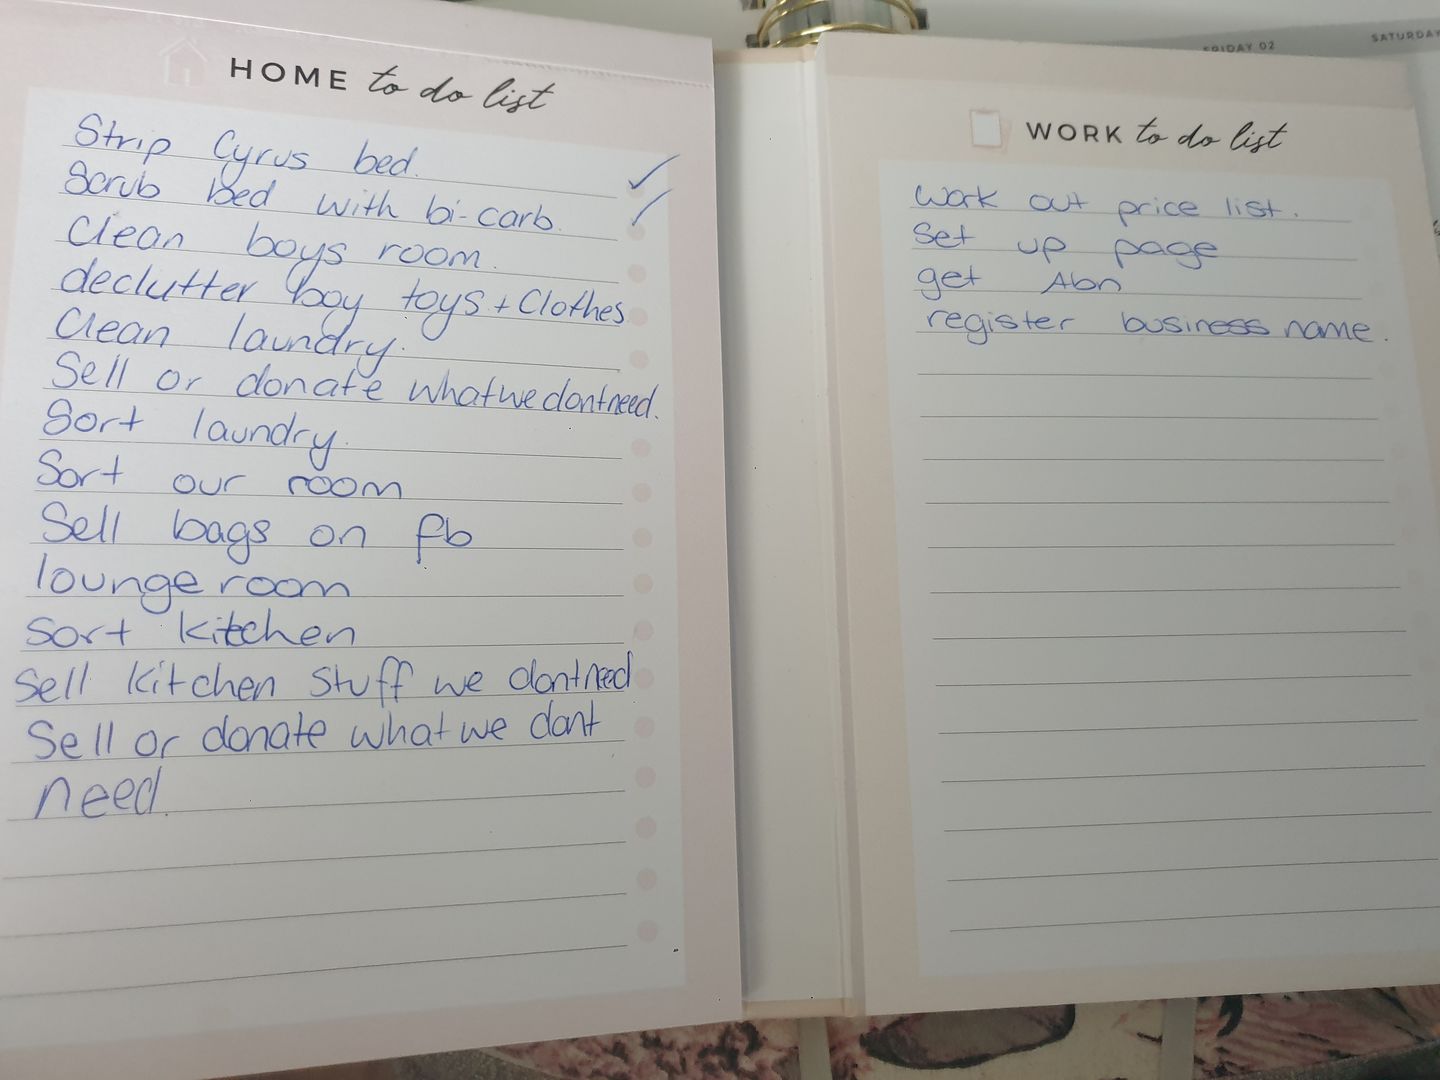 HOME to do list
Strip Cyrus bed.
Scrub bed with bi-carb.
Clean boys room.
declutter boy toys + Clothes
Clean laundry.
Sell or donate what we dont need.
Sort laundry.
Sort our room
Sell bags on fb
lounge room
Sort kitchen
Sell kitchen stuff we dont need
Sell or donate what we dont
need.
FRIDAY 02
SATURDAY
WORK to do list
Work out price list.
Set up page
get Abn
register business name.